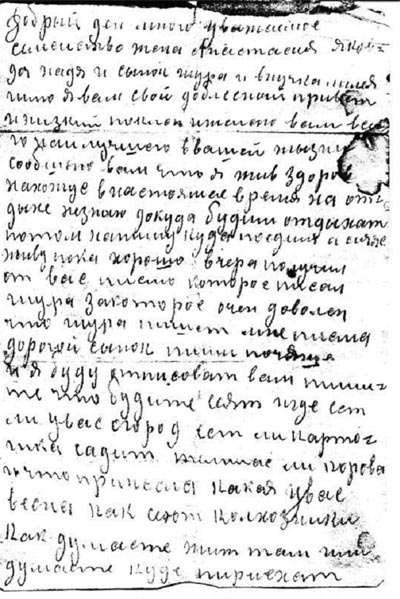 Добрый ден много уважаемое
семейство жена Анастасия Яков
да надя и сынок шура и внучка
шлю я вам свой доблесной привет
и низкий поклон и желаю вам все
го наилучшего в вашей жызни
сообщаю вам что я жив здоров
нахожус в настоящее время на от
дыхе незнаю докуда будим отдыхат
потом напишу куда поедим а сичас
живу пока хорошо вчера получил
от вас писмо которое писал
шура за которое очен доволен
что шура пишет мне писма
дорогой сынок пиши почяще
и я буду отписоват вам пиши-
те что будите сеят и где ест
ли увас огород ест ли карто-
шка садит корова
и что принесла какая увас
весна как сеют колхозники
как думаете жит там или
думаете куда переехат